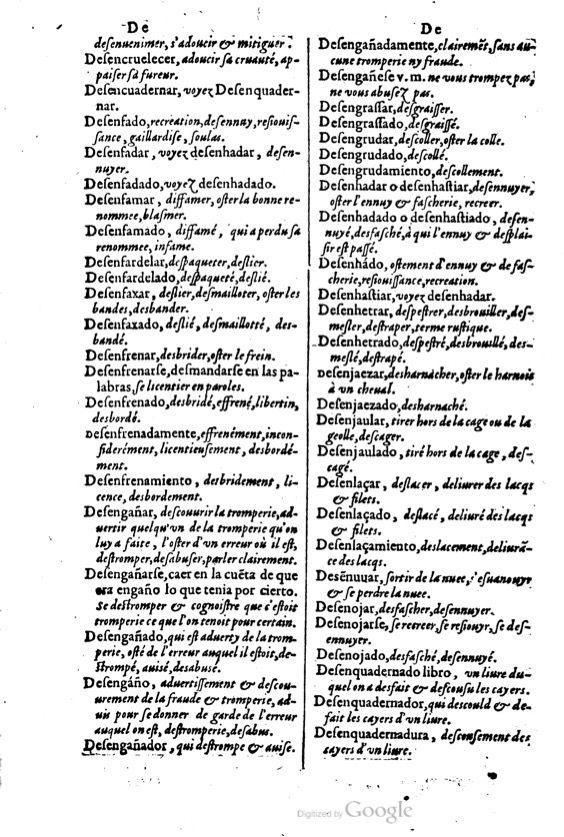 De
desuenimer, s'adoucir & mitiguer.
Desencruelecer, adoucir sa cruauté, ap-
paiser sa fureur.
Desencuadernar, voyez Desenquader-
nar.
Desenfado, recreation, desennuy, resiouis-
sance, gaillardise, soulas.
Desenfadar, voyez desenhadar, desen-
nuyer.
Desenfadado, voyez desenhadado.
Desenfamar, diffamer, oster la bonne re-
nommee, blasmer.
Desenfamado, diffamé, qui a perdu sa
renommee, infame.
Desenfardelar, despaqueter, deslier.
Desenfardelado, despaqueté, deslié.
Desenfaxar, deslier, desmailloter, oster les
bandes, desbander.
Desenfaxado, deslié, desmaillotté, des-
bandé.
Desenfrenar, desbrider, oster le frein.
Desenfrenarse, desmandarse en las pa-
labras, se licentier en paroles.
Desenfrenado, desbridé, effrené, libertin,
desbordé.
Desenfrenadamente, effrenément, incon-
siderément, licentieusement, desbordé-
ment.
Desenfrenamiento, desbridement, li-
cence, desbordement.
Desengañar, descouurir la tromperie, ad-
uertir quelqu'vn de la tromperie qu'on
luy a faite, l'oster d'vn erreur où il est,
destromper, desabuser, parler clairement.
Desengañarse, caer en la cuẽta de que
era engaño lo que tenia por cierto.
Se destromper & cognoistre que c'estoit
tromperie ce que l'on tenoit pour certain.
Desengañado, qui est aduerty de la trom-
perie, osté de l'erreur auquel il estoit, de-
strompé, auisé, desabusé.
Desengáño, aduertissement & descou-
urement de la fraude & tromperie, ad-
uis pour se donner de garde de l'erreur
auquel on est, destromperie, desabus.
Desengañador, qui destrompe & auise.
De
Desengañadamente, clairemẽt, sans au-
cune tromperie ny fraude.
Desengañese v. m. ne vous trompez pas,
ne vous abusez pas.
Desengrassar, desgraisser.
Desengrassado, desgraissé.
Desengrudar, descoller, oster la colle.
Desengrudado, descollé.
Desengrudamiento, descollement.
Desenhadar o desenhastiar, desennuyer,
oster l'ennuy & fascherie, recreer.
Desenhadado o desenhastiado, desen-
nuyé, desfasché, à qui l'ennuy & desplai-
sir est passé.
Desenhádo, ostement d'ennuy & de fas-
cherie, resiouissance, recreation.
Desenhastiar, voyez desenhadar.
Desenhetrar, despestrer, desbrouiller, des-
mesler, destraper, terme rustique.
Desenhetrado, despestré, desbrouillé, des-
meslé, destrapé.
Desenjaezar, desharnacher, oster le harnois
à vn cheual.
Desenjaezado, desharnaché.
Desenjaular, tirer hors de la cage ou de la
geolle, descager.
Desenjaulado, tiré hors de la cage, des-
cagé.
Desenlaçar, deslacer, deliurer des lacqs
& filets.
Desenlaçado, deslacé, deliuré des lacqs
& filets.
Desenlaçamiento, deslacement, deliurã-
ce des lacqs.
Desẽnuuar, sortir de la nuee, s'esuanouyr
& se perdre la nuee.
Desenojar, desfascher, desennuyer.
Desenojarse, se recreer, se resiouyr, se des-
ennuyer.
Desenojado, desfasché, desennuyé.
Desenquadernado libro, vn liure du-
quel on a desfait & descousu les cayers.
Desenquadernador, qui descould & de-
fait les cayers d'vn liure.
Desenquadernadura, descousement des
cayers d'vn liure.
Digitized by Google